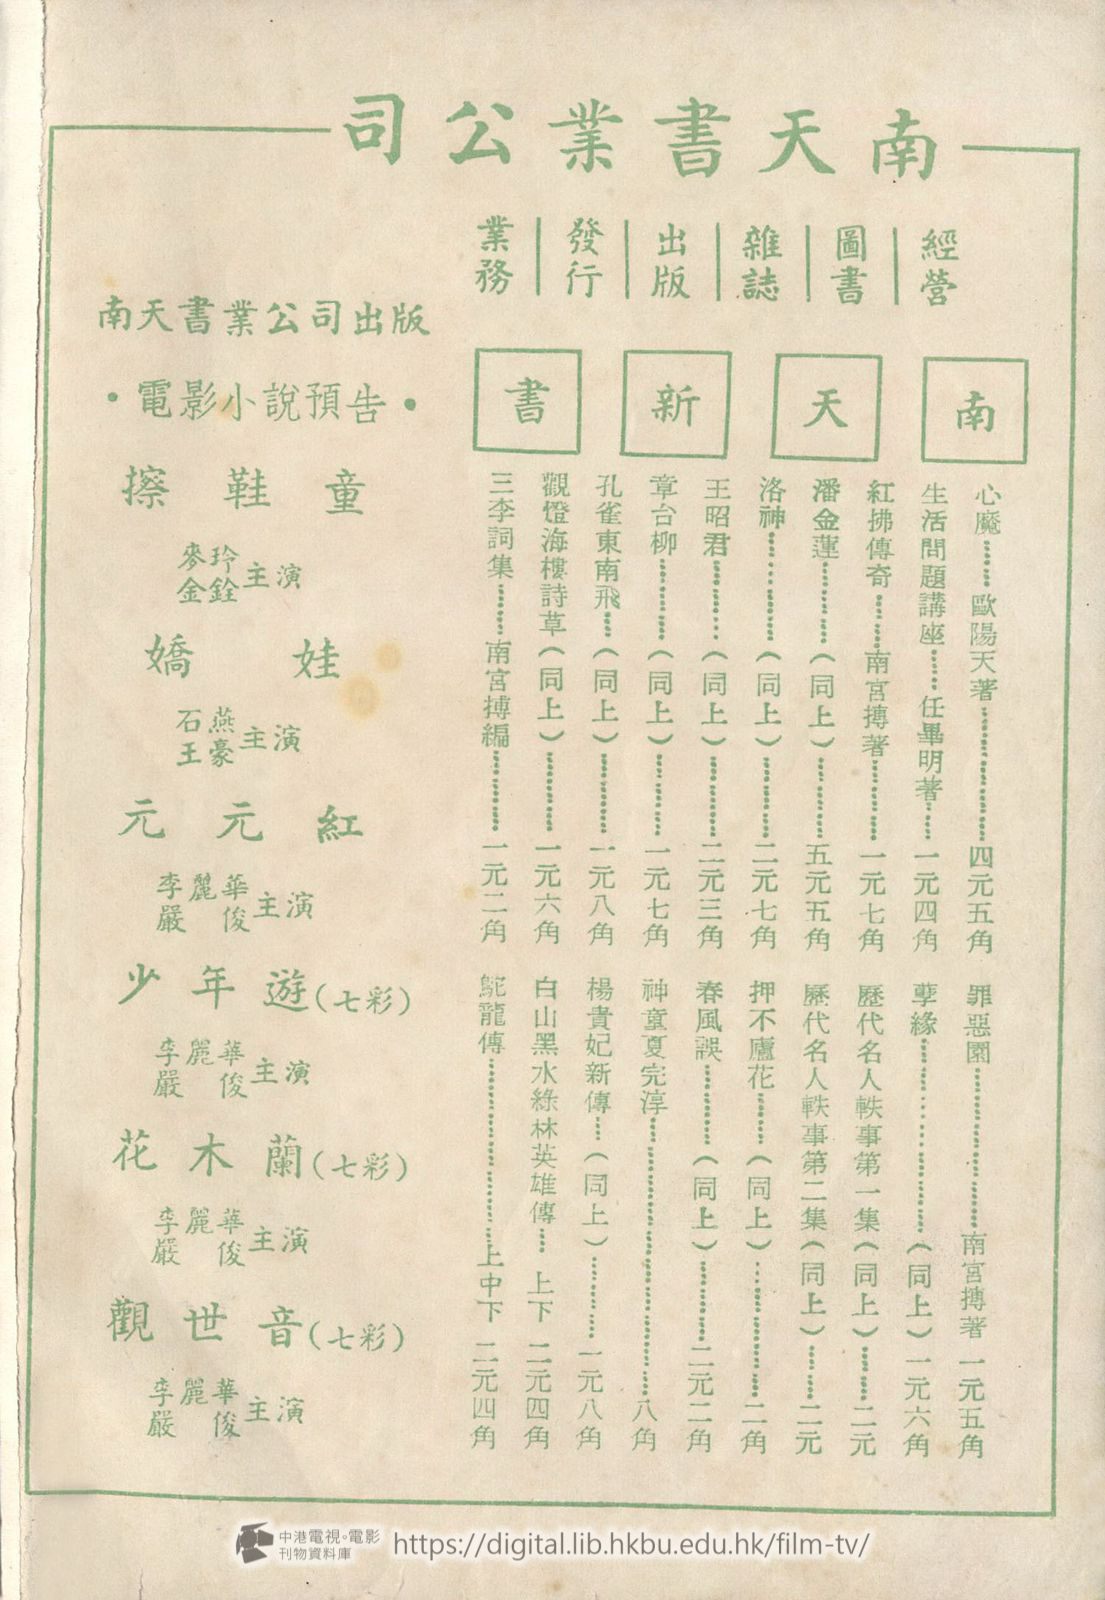 南天書業公司
經營｜圖書｜雜誌｜出版｜發行｜業務
南天新書
心魔……歐陽天著……四元五角
生活問題講座……任畢明著……一元四角
紅拂傳奇……南宮搏著……一元七角
潘金蓮……（同上）……五元五角
洛神……（同上）……二元七角
王昭君……（同上）……二元三角
章台柳……（同上）……一元七角
孔雀東南飛……（同上）……一元八角
觀燈海樓詩草（同上）……一元六角
三李詞集……南宮搏編……一元二角
罪惡園……南宮搏著 一元五角
孽緣……（同上）一元六角
歷代名人軼事第一集（同上）……二元
歷代名人軼事第二集（同上）……二元
押不廬花……（同上）……二角
春風誤……（同上）……二元二角
神童夏完淳……八角
楊貴妃新傳……（同上）……一元八角
白山黑水綠林英雄傳…… 上下 二元四角
鴕龍傳……上中下 二元四角
南天書業公司出版
·電影小說預告·
擦鞋童
麥玲
金銓主演
嬌娃
石燕
王豪主演
元元紅
李麗華
嚴俊主演
少年遊(七彩)
李麗華
嚴俊主演
花木蘭(七彩)
李麗華
嚴俊主演
觀世音(七彩)
李麗華
嚴俊主演
中港電視·電影
刊物資料庫
https://digital.lib.hkbu.edu.hk/film-tv/